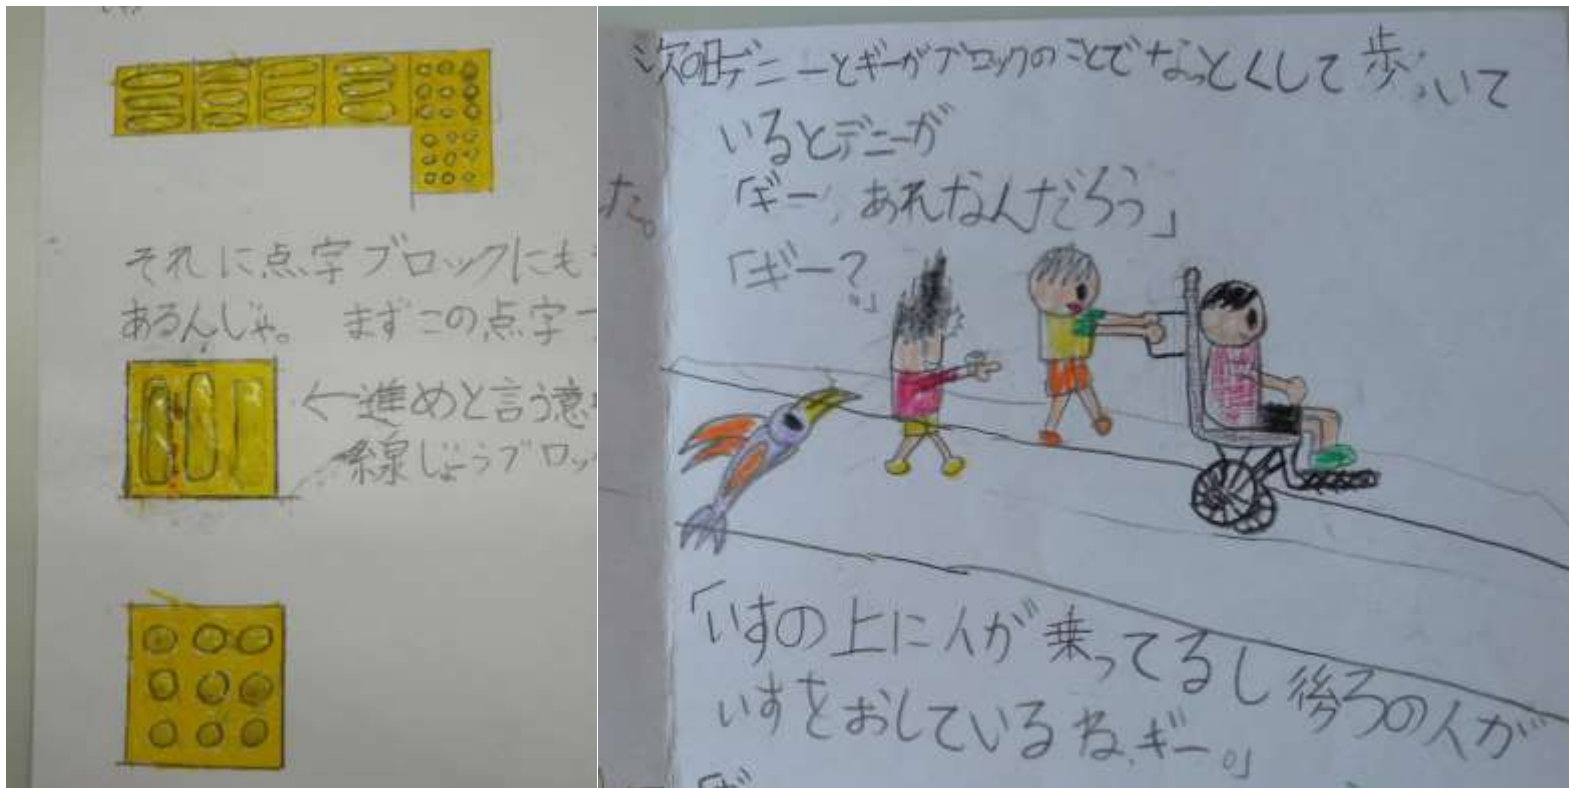 それに点字ブロックにも
あるんじゃ。 まずこの点字
←進めと言う意
線じょうブロッ
た。
次の日デニーとギーがブロックのことでなっとくして歩いて
いるとデニーが
「ギー、あれなんだろう」
「ギー?」
「いすの上に人が乗ってるし後ろの人が
いすをおしているね、ギー。」